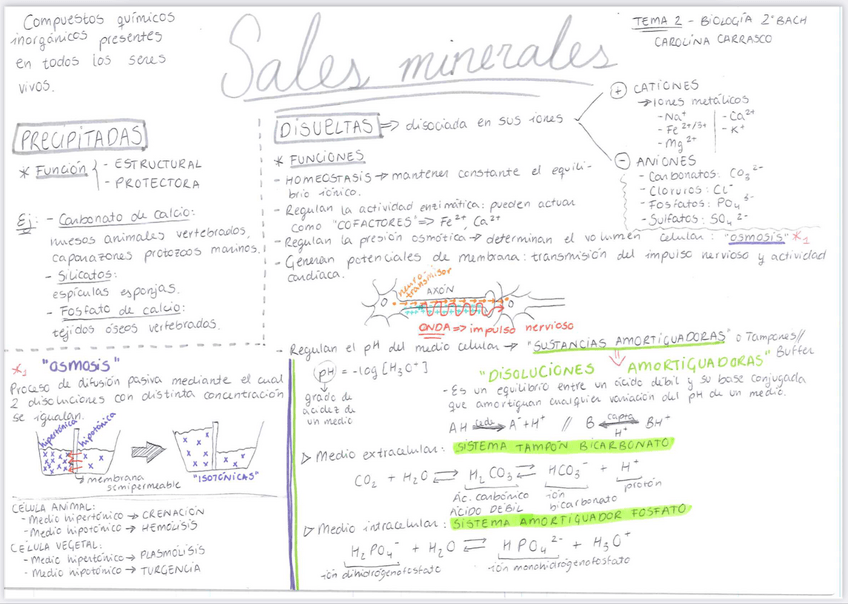 Compuestos químicos
inorgánicos presentes
en todos los seres
vivos.
Sales minerales
TEMA 2 - BIOLOGÍA 2º BACH
CAROLINA CARRASCO
PRECIPITADAS
* Función - ESTRUCTURAL
- PROTECTORA
Ej: - Carbonato de calcio:
huesos animales vertebrados,
caparazones protozoos marinos.
- Silicatos:
espículas esponjas.
- Fosfato de calcio:
tejidos óseos vertebrados.
DISUELTAS => disociada en sus iones
+ CATIONES
→ Iones metálicos
- Na+ - Ca2+
- Fe2+/3+ - K+
- Mg2+
- ANIONES
- Carbonatos: CO3 2-
- Cloruros: Cl-
- Fosfatos: PO4 3-
- Sulfatos: SO4 2-
* FUNCIONES
- HOMEOSTASIS → mantener constante el equili-
brio iónico.
- Regulan la actividad enzimática: pueden actuar
como "COFACTORES" => Fe2+, Ca2+
- Regulan la presión osmótica → determinan el volumen celular: "OSMOSIS" *1
- Generan potenciales de membrana: transmisión del impulso nervioso y actividad
cardíaca.
neuro
transmisor
AXÓN
ONDA => impulso nervioso
- Regulan el pH del medio celular → "SUSTANCIAS AMORTIGUADORAS" o Tampones//
Buffer
pH = -log [H3O+]
grado de
acidez de
un medio
"DISOLUCIONES AMORTIGUADORAS"
- Es un equilibrio entre un ácido débil y su base conjugada
que amortiguan cualquier variación del pH de un medio.
AH cede → A- + H+ // B capta ← H+ BH+
▷ Medio extracelular: SISTEMA TAMPÓN BICARBONATO
CO2 + H2O ⇄ H2CO3 ⇄ HCO3- + H+
ác. carbónico ión protón
ÁCIDO DÉBIL bicarbonato
▷ Medio intracelular: SISTEMA AMORTIGUADOR FOSFATO
H2PO4- + H2O ⇄ HPO4 2- + H3O+
ión dihidrógenofosfato ión monohidrógenofosfato
*1 "OSMOSIS"
Proceso de difusión pasiva mediante el cual
2 disoluciones con distinta concentración
se igualan.
hipertónica hipotónica
membrana
semipermeable
"ISOTÓNICAS"
CÉLULA ANIMAL:
- Medio hipertónico → CRENACIÓN
- Medio hipotónico → HEMÓLISIS
CÉLULA VEGETAL:
- Medio hipertónico → PLASMÓLISIS
- Medio hipotónico → TURGENCIA